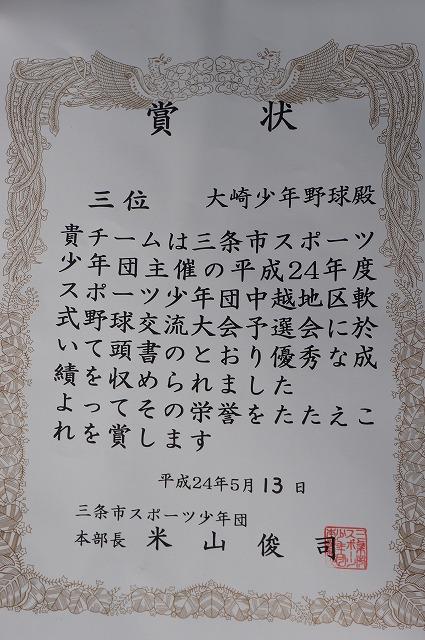 賞状
三位 大崎少年野球殿
貴チームは三条市スポーツ
少年団主催の平成24年度
スポーツ少年団中越地区軟
式野球交流大会予選会に於
いて頭書のとおり優秀な成
績を収められました
よってその栄誉をたたえこ
れを賞します
平成24年5月13日
三条市スポーツ少年団
本部長 米山俊司